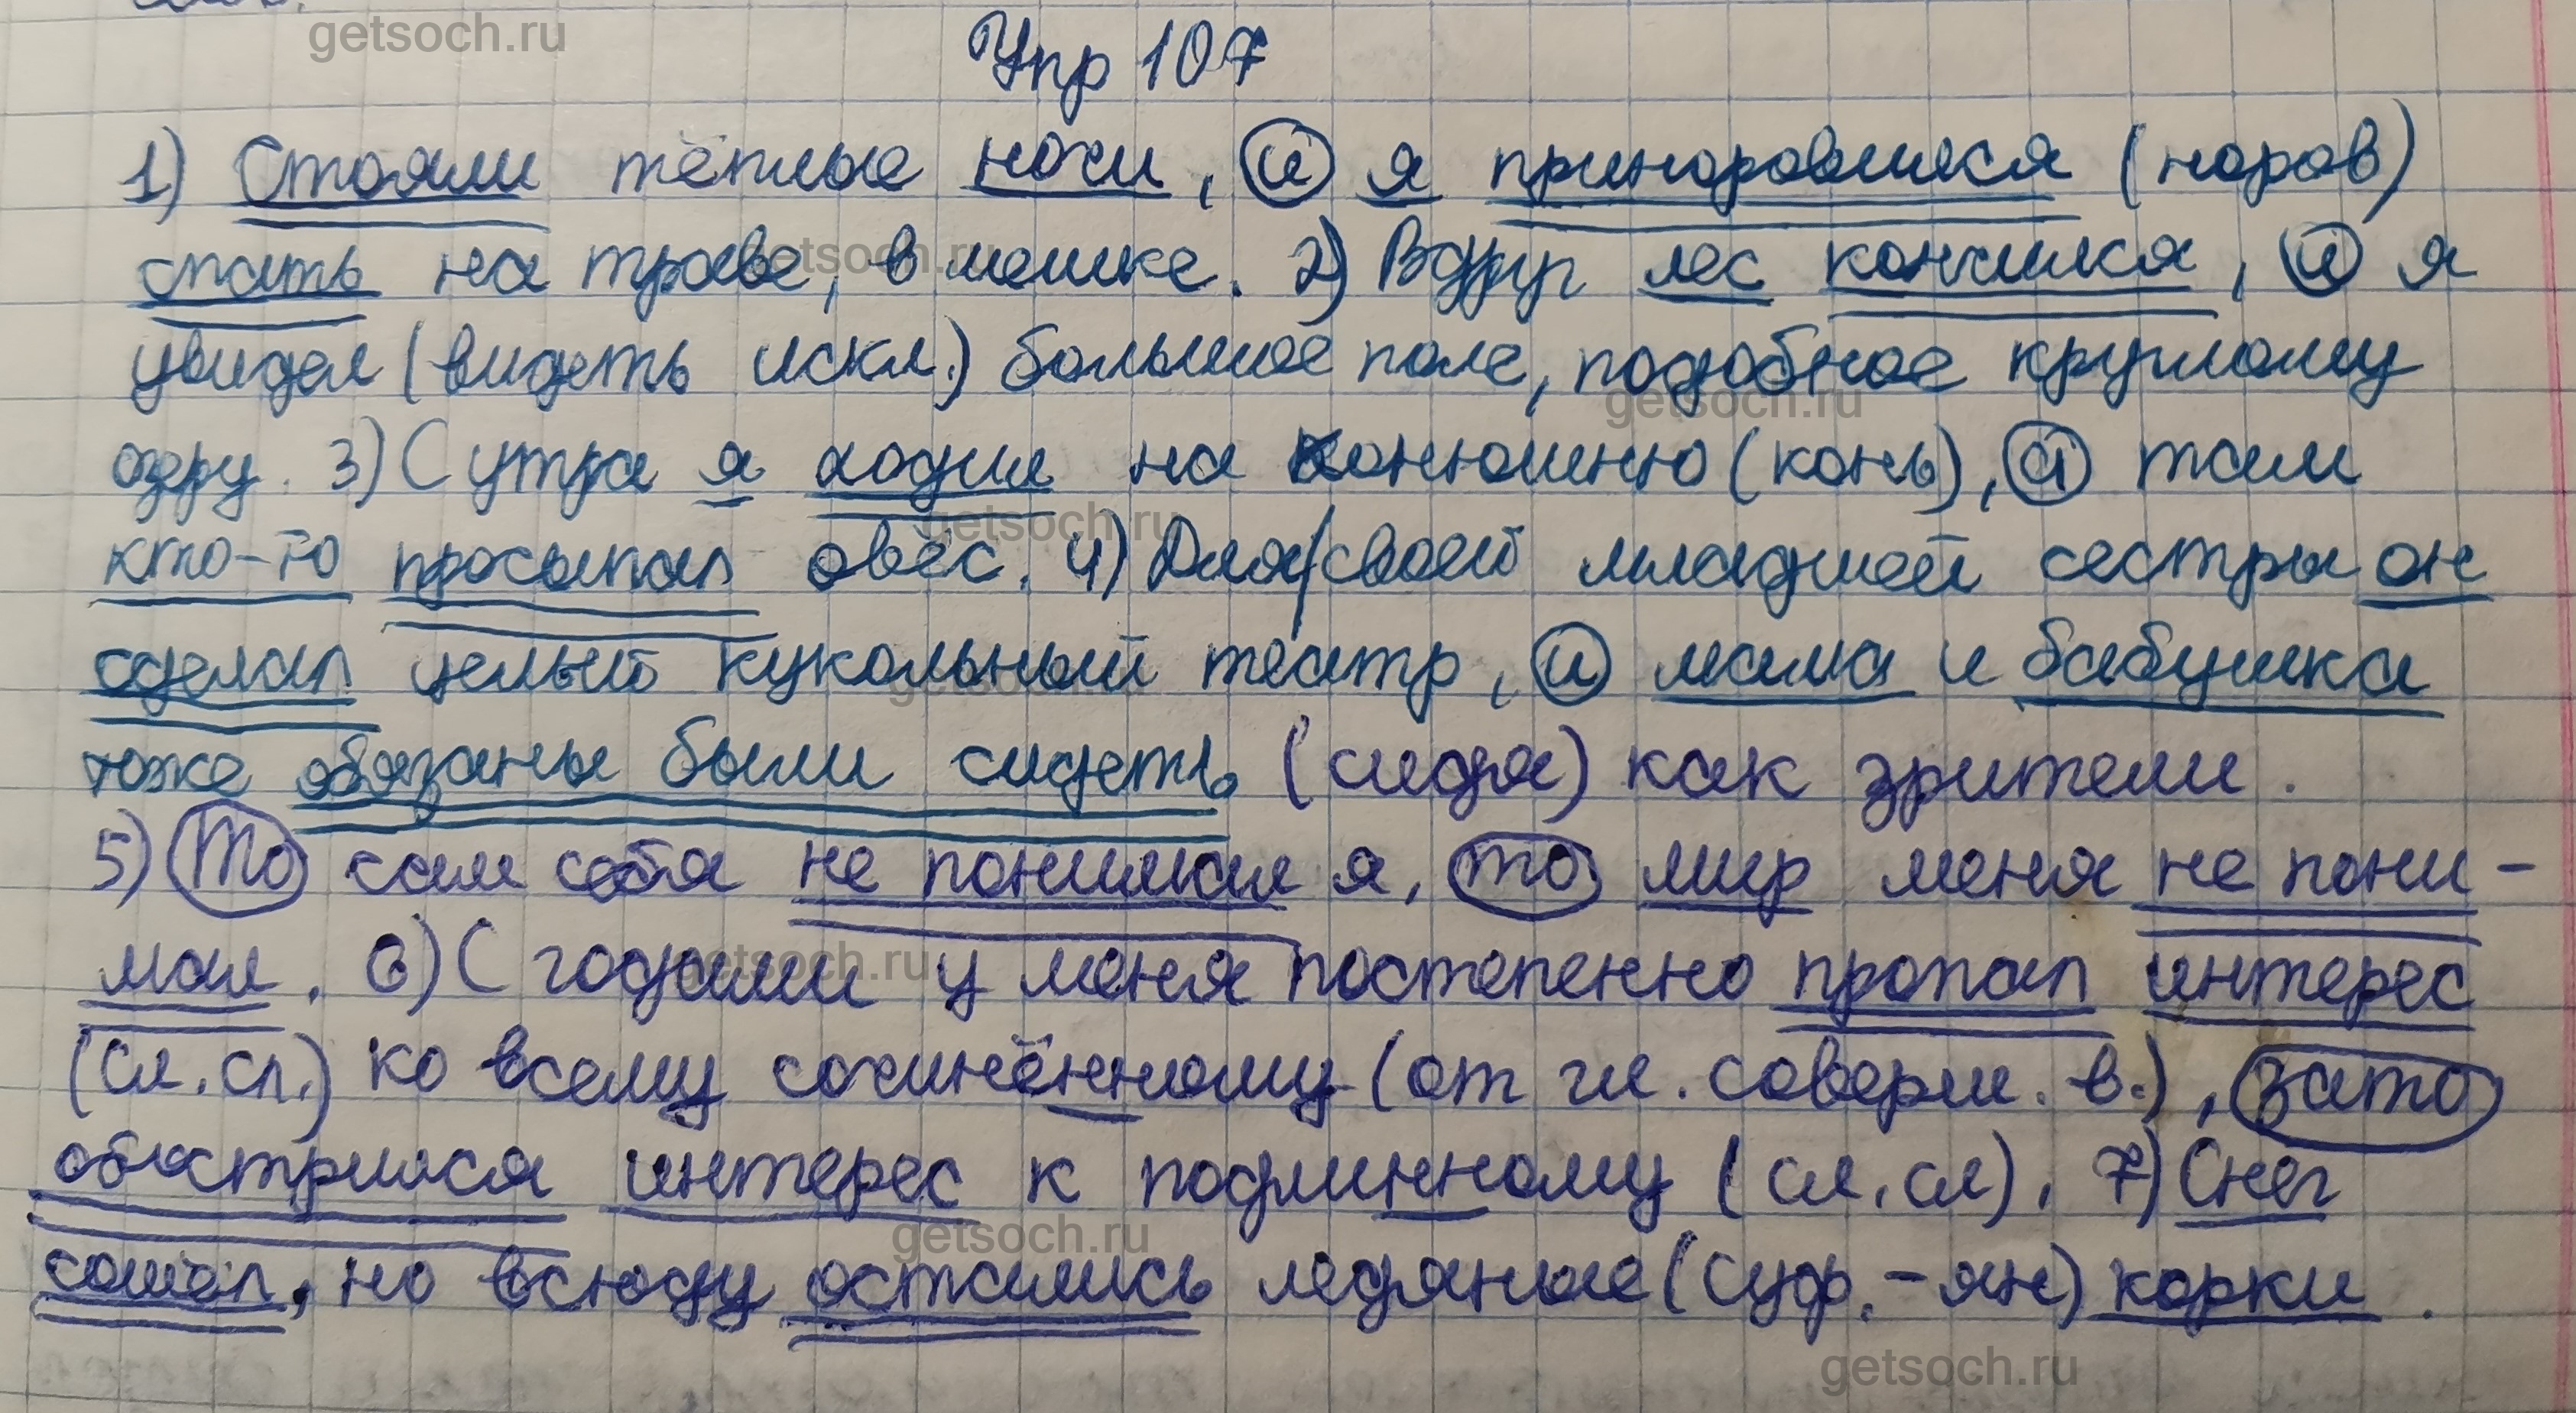 getsoch.ru
Упр 107
1) Стояли тёплые ночи, и я приноровился (норов)
спать на траве, в мешке. 2) Вдруг лес кончился, и я
getsoch.ru
увидел (видеть искл.) большое поле, подобное круглому
getsoch.ru
озеру. 3) С утра я ходил на конюшню (конь), а там
getsoch.ru
кто-то просыпал овёс. 4) Для своей младшей сестры он
сделал целый кукольный театр, и мама и бабушка
getsoch.ru
тоже обязаны были сидеть (сидя) как зрители.
5) То сам себя не понимал я, то мир меня не пони-
мал. 6) С годами у меня постепенно пропал интерес
getsoch.ru
(сл. сл.) ко всему сочинённому (от гл. соверш. в.), зато
обострился интерес к подлинному (сл. сл). 7) Снег
getsoch.ru
сошёл, но всюду остались ледяные (суф. -ян) корки.
getsoch.ru